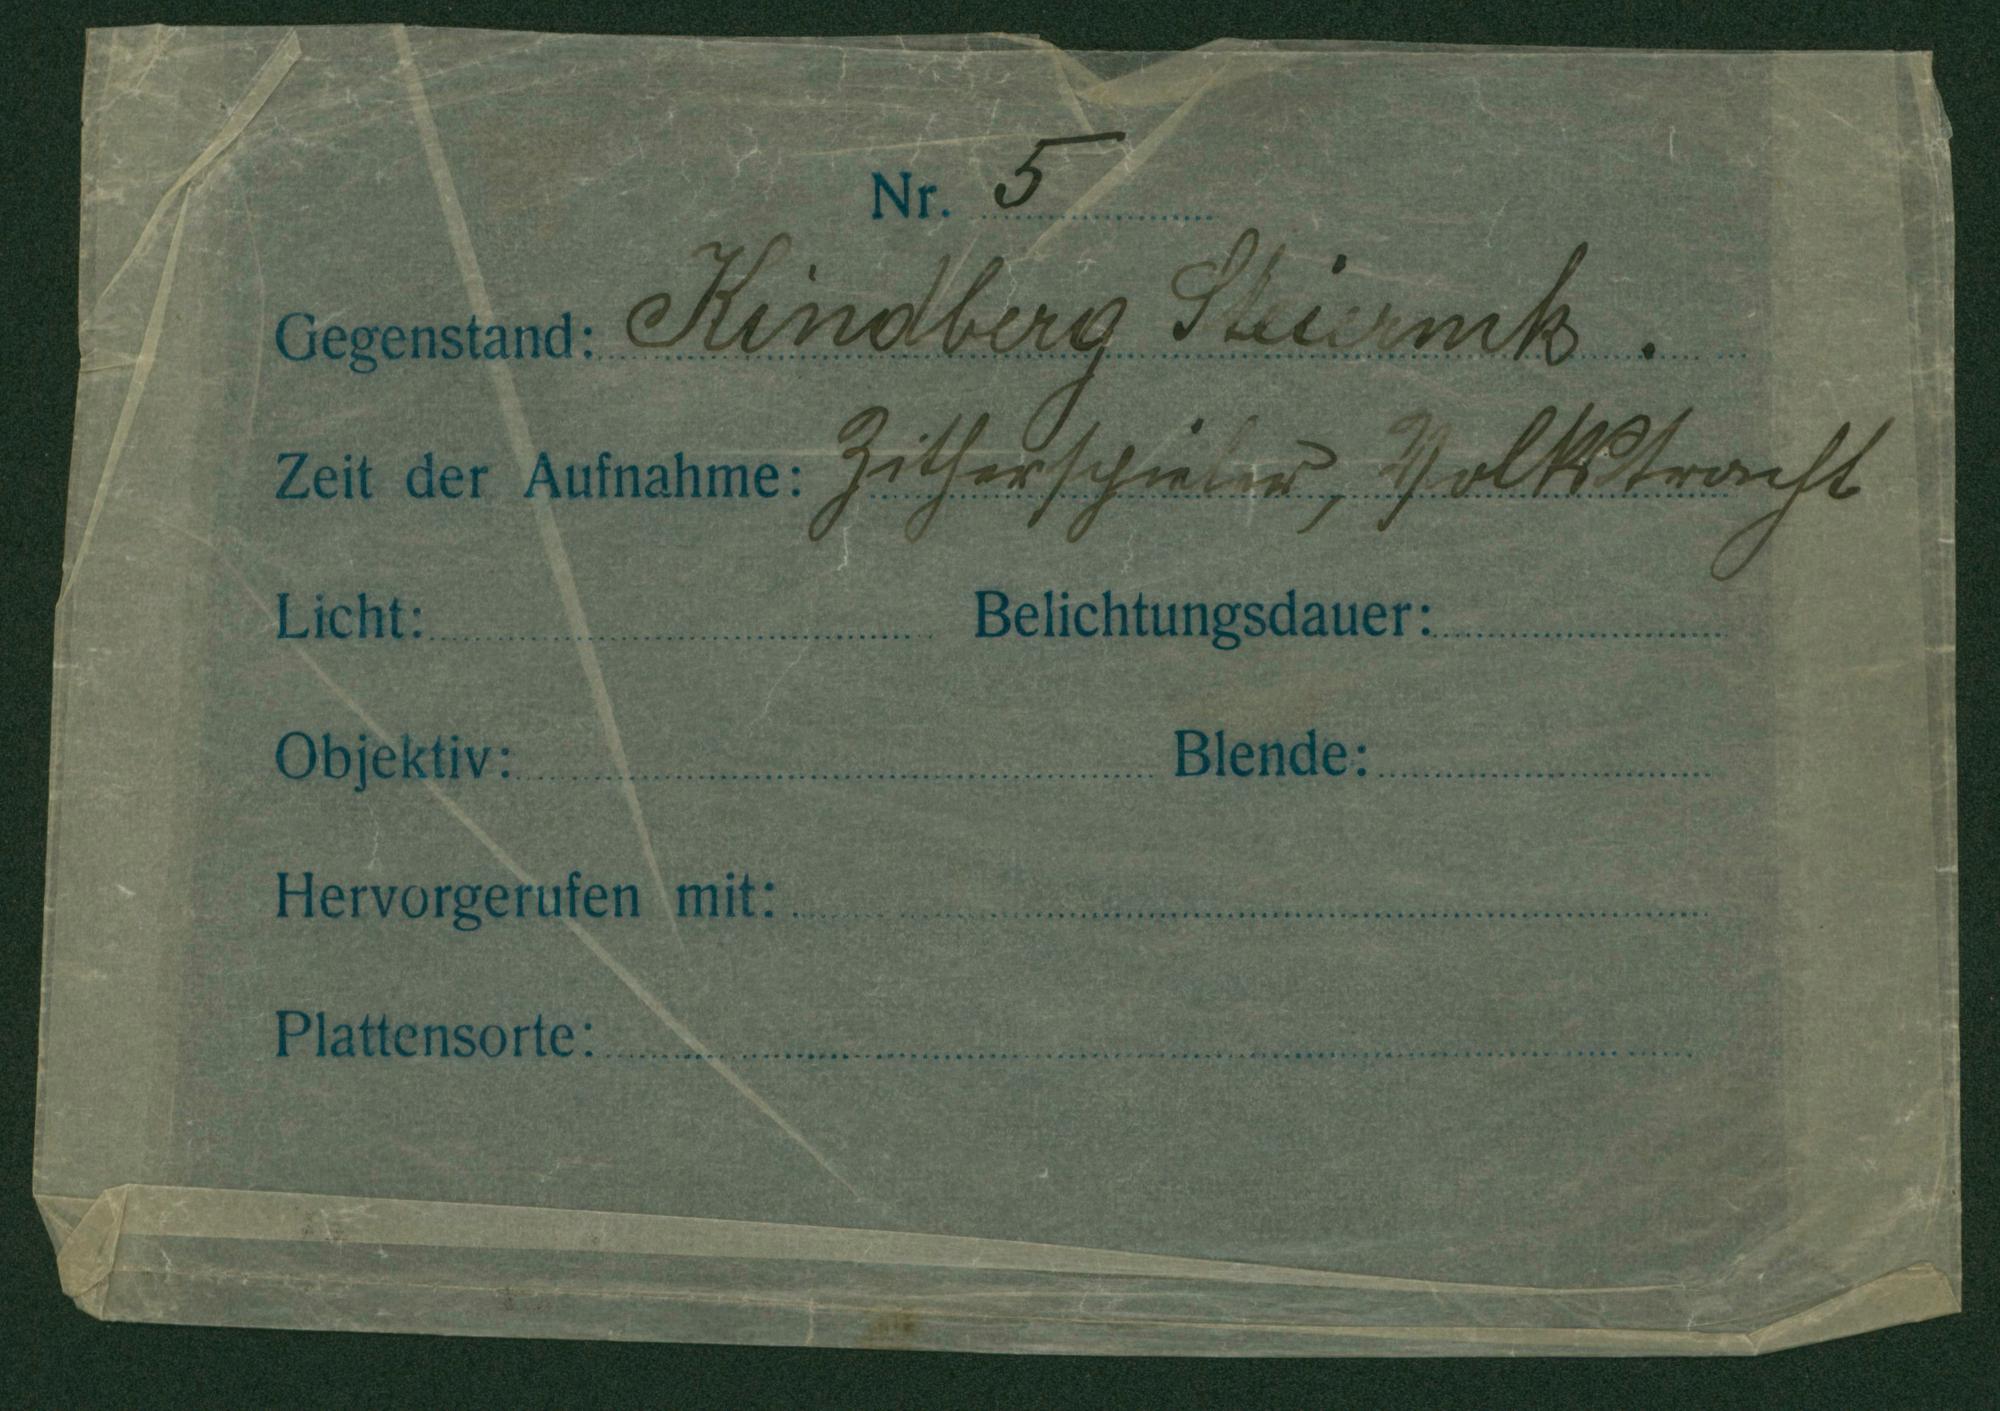 Nr. 5
Gegenstand: Kindberg Steiermk.
Zeit der Aufnahme: Zitherspieler, Volkstracht
Licht: Belichtungsdauer:
Objektiv: Blende:
Hervorgerufen mit:
Plattensorte: